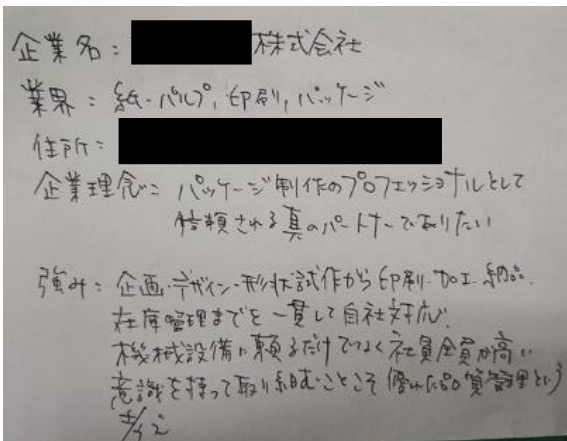 企業名: 株式会社
業界: 紙・パルプ, 印刷, パッケージ
住所:
企業理念: パッケージ制作のプロフェッショナルとして
信頼される真のパートナーでありたい
強み: 企画・デザイン・形状試作から印刷・加工・納品・
在庫管理までを一貫して自社対応。
機械設備に頼るだけでなく社員全員が高い
意識を持って取り組むことこそ優れた品質管理という
考え